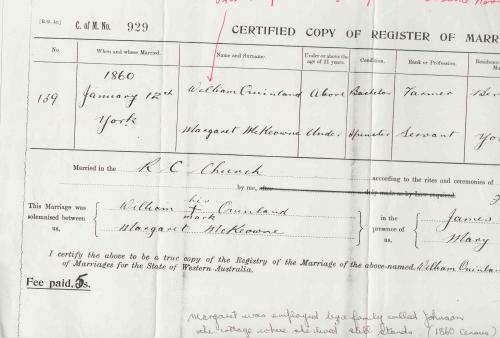 [R.G. 10.] C. of M. No. 929
CERTIFIED COPY OF REGISTER OF MARR
No. When and where Married. Name and Surname. Under or above the age of 21 years. Condition. Rank or Profession. Residence Ma
1860
139 January 12th William Quinland Above Bachelor Farmer Bev
York
Margaret McKeowne Under Spinster Servant Yor
Married in the R C Church according to the rites and ceremonies of
by me,
This Marriage was solemnised between us, William his + mark Quinland
Margaret McKeowne
in the presence of us, James
Mary
I certify the above to be a true copy of the Registry of the Marriage of the above-named William Quinlan
of Marriages for the State of Western Australia.
Fee paid, 5s.
Margaret was employed by a family called Johnson
the cottage where she lived still stands (1860 census)